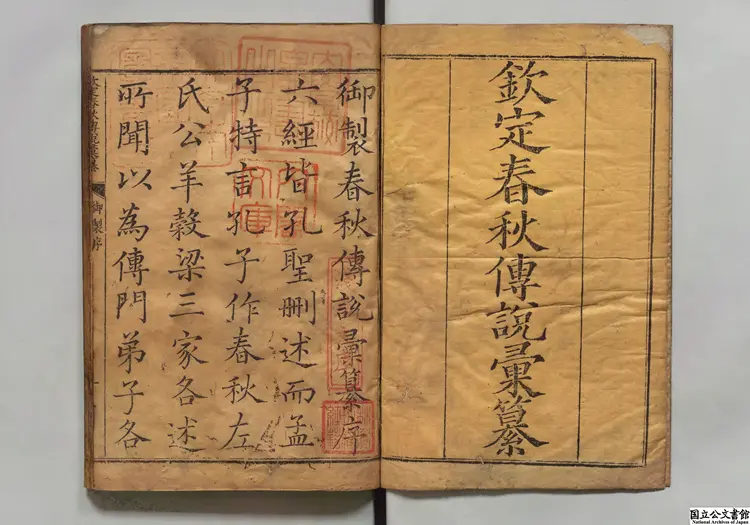 欽定春秋傳說彙纂
御製春秋傳說彙纂序
六經皆孔聖刪述而孟
子特言孔子作春秋左
氏公羊穀梁三家各述
所聞以為傳門弟子各
御製序
国立公文書館
National Archives of Japan